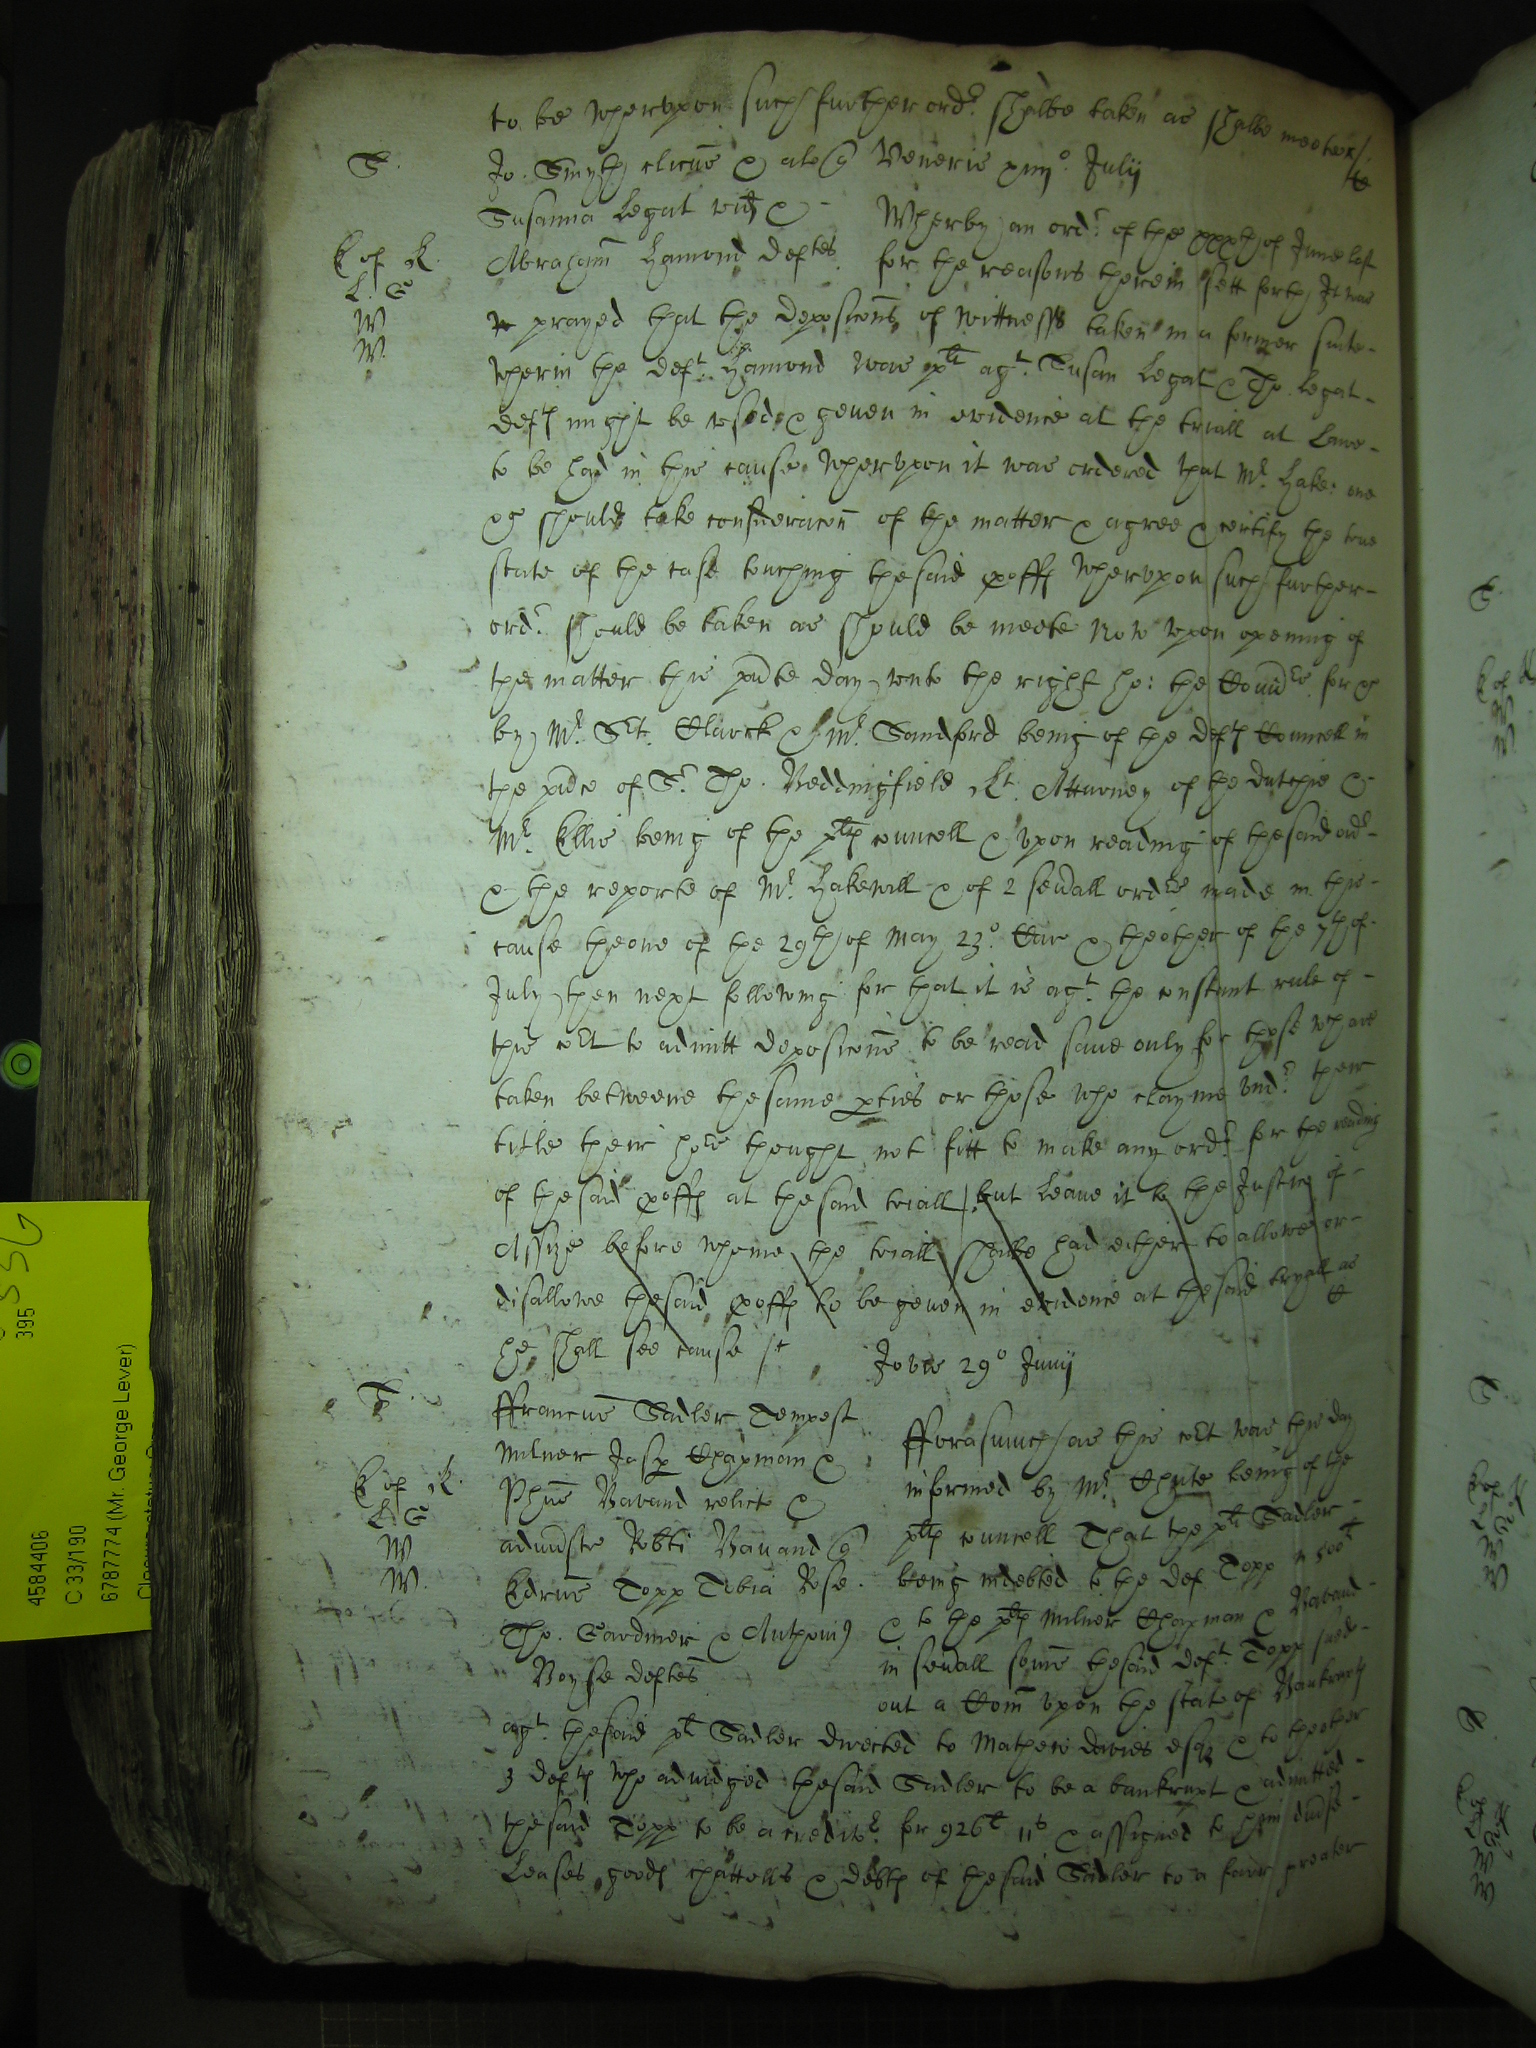 to be wherevpon such further ordr shalbe taken as shalbe meete
S. Jo. Smyth clicus & al Veneris xiiijo Julij
Susanna Legat vid &
Wherby an ordr of the xxxth of June last
K of R. Abraham Hamond deftes for the reasons therein sett forth It was
L. G
prayed that the deposicons of wittnesses taken in a former suite
W
wherin the deft Hamond was plt agt Susan Legat & Tho. Legat
W
deftes might be vsed & geven in evidence at the triall at Lawe
to be had in this cause wherevpon it was ordered that Mr Hake: one
&c should take consideracon of the matter & agree & certify the true
state of the case touching the said proffes wherevpon such further
ordr should be taken as should be meete Now vpon opening of
the matter this pnte day vnto the right ho: the Comrs for &c
by Mr Srt. Clarck & Mr Sandford being of the deftes Councell in
the pnce of Sr Tho. Beddingfield Kt. Atturney of the Dutchie &
Mr Ellis being of the pltes councell & vpon reading of the said ordr
& the reporte of Mr Hakewill & of 2 seuall ordrs made in this
cause theone of the 29th of May 23o Car & theother of the 7th of
July then next following for that it is agt the constant rule of
this Cort to admitt deposicons to be read saue only for those wh are
taken betweene the same pties or those who clayme vndr their
title their hors thought not fitt to make any ordr for the reading
of the said proffes at the said triall / but leave it to the Justice of
Assize before whome the triall shalbe had either to allowe or
disallowe the said proffes to be geven in evidence at the said tryall as
he shall see cause
Jovis 29o Junij
ffrancus Sadler Tempest
Milner Jasp Chapman &
Phus Bavand relict &
K of R.
L. G
W
W.
admstr Robti Bavand
Edrus Topp Tobia Rose.
Tho. Gardiner & Anthony
Boyse deftes
fforasmuch as this Cort was this day
informed by Mr Chute being of the
pltes councell That the plt Sadler
being indebted to the def Topp in 500l
& to the pltes Milner Chapman & Bavand
in seuall somes the said deft Topp sued
out a Com vpon the state of Bankrupts
agt the said plt Sadler directed to Mathew davies esqr & to theother
3 deftes who adiudged the said Sadler to be a bankrupt & admitted
the said Topp to be a creditr for 926l 11s & assigned to him diuse
Leases goods chattells & debts of the said Sadler to a farr greater
395
4584406
C 33/190
6787774 (Mr. George Lever)